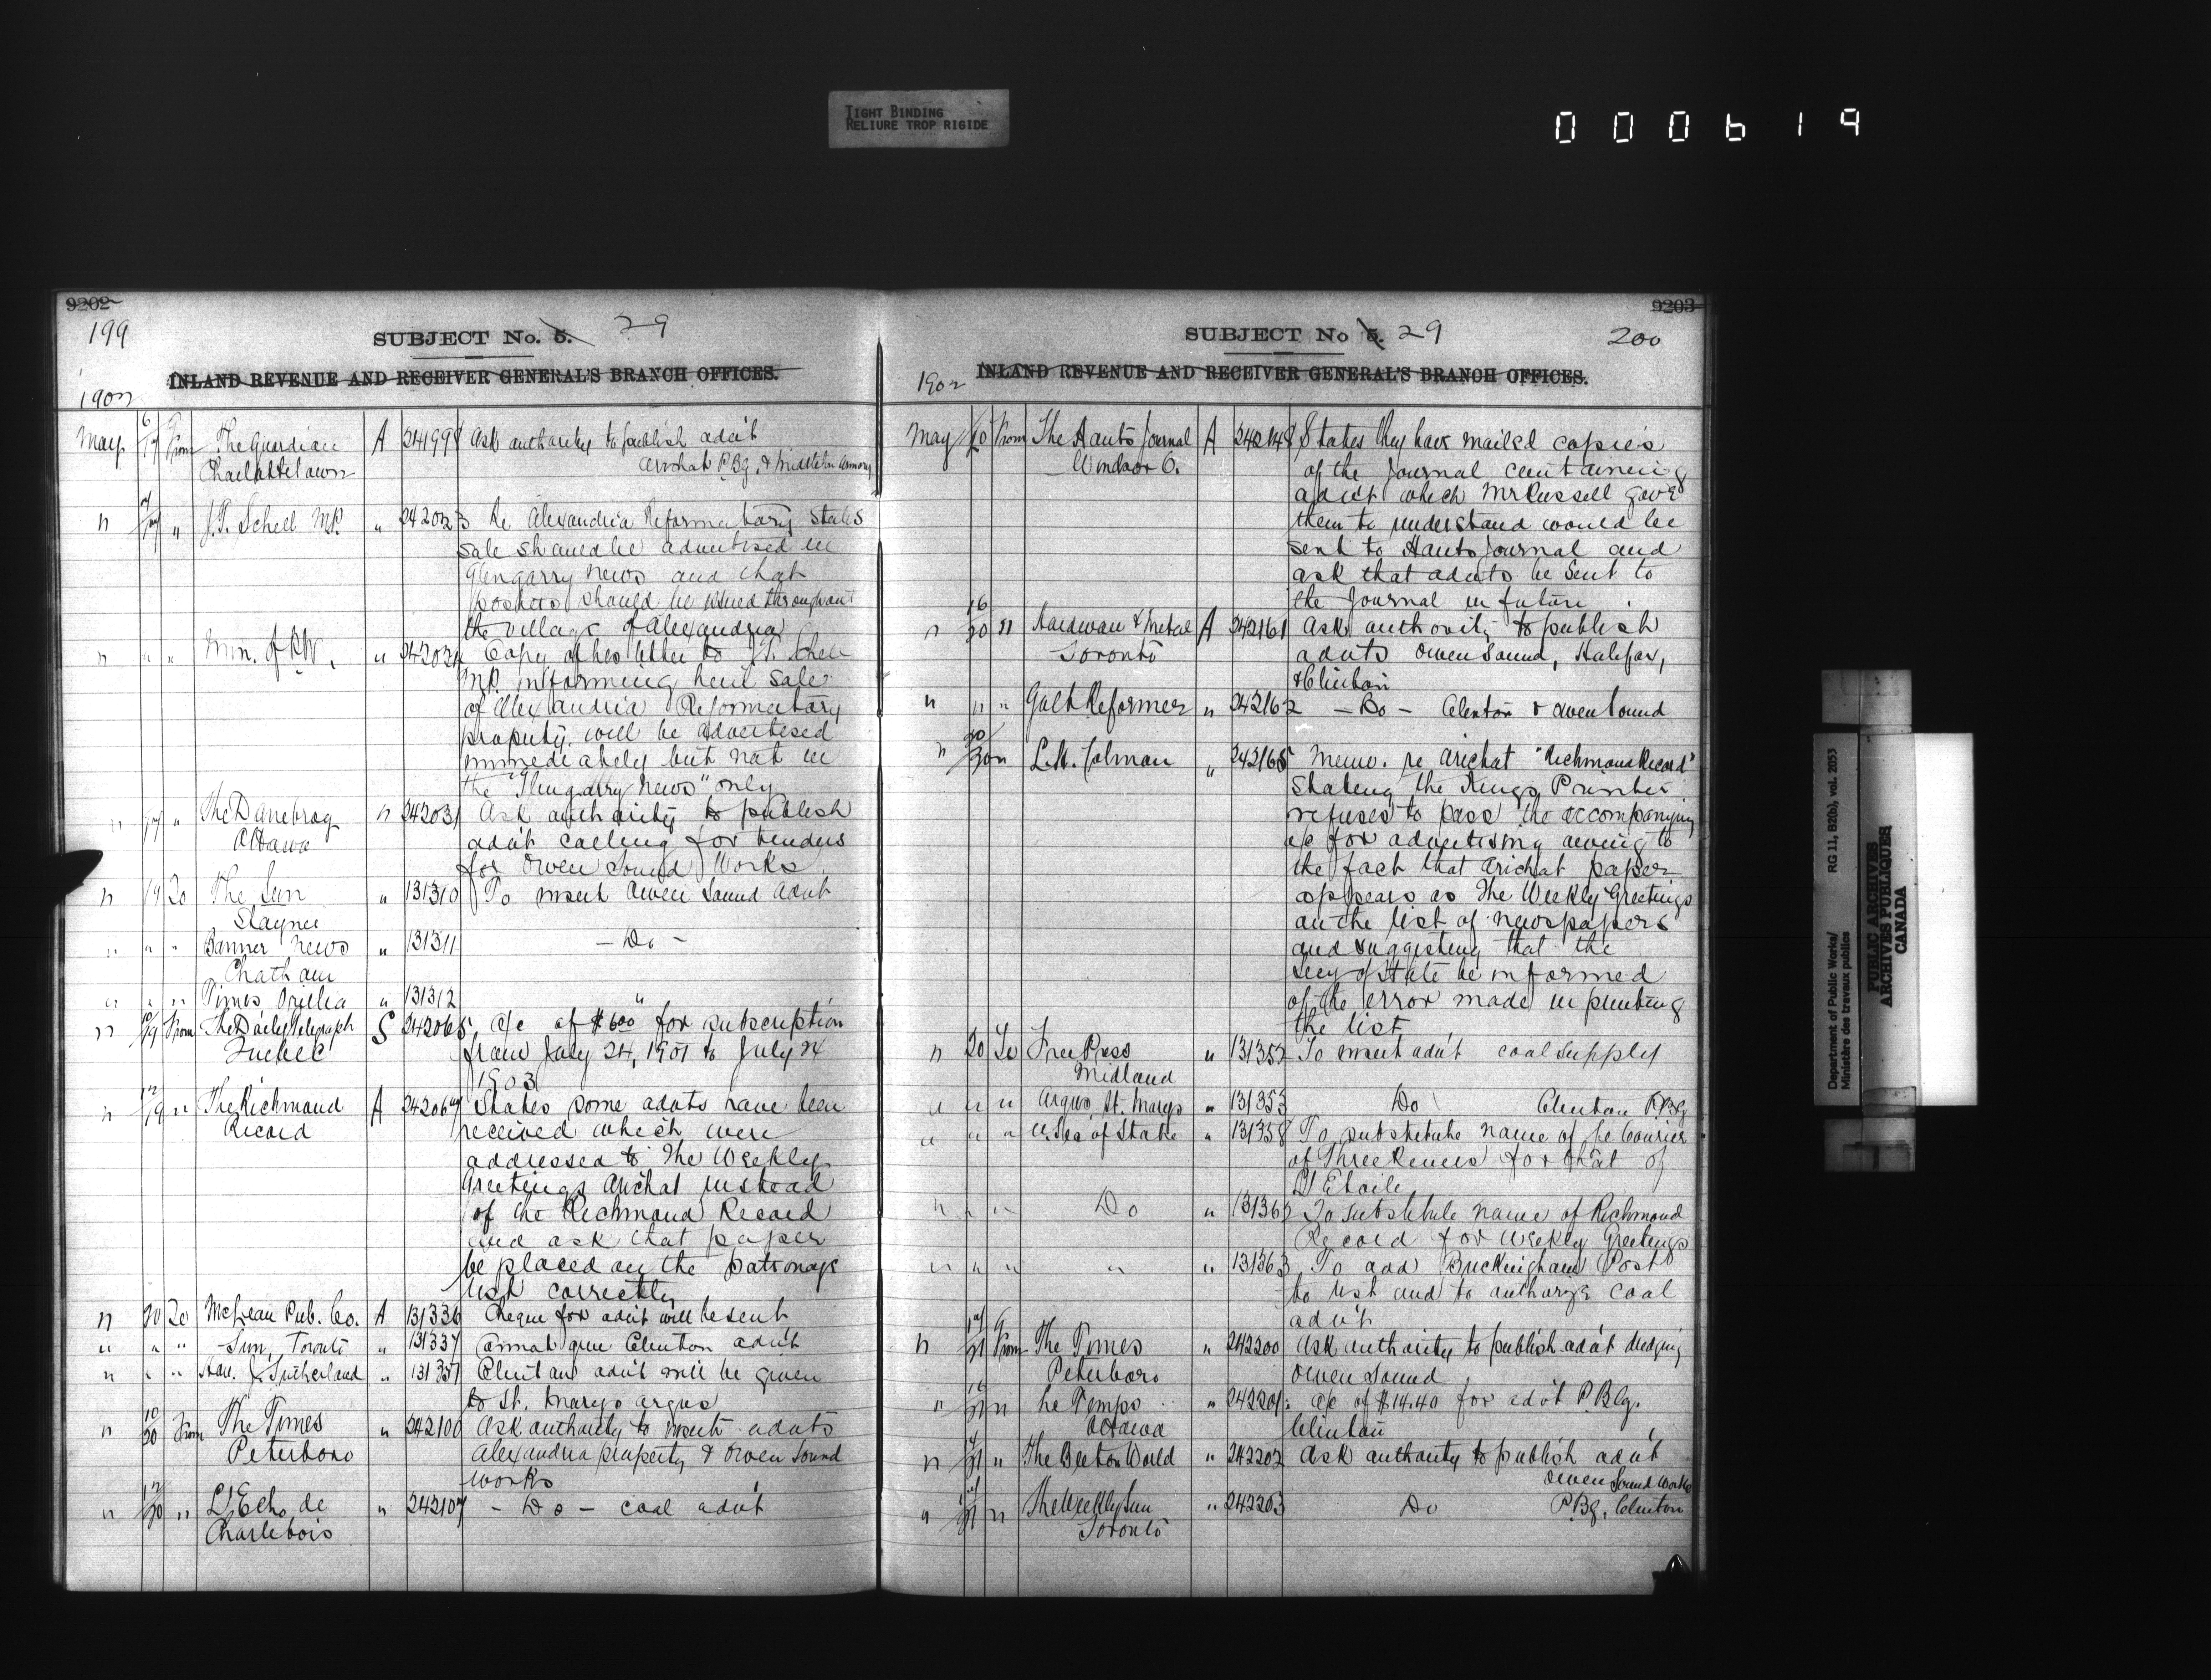 TIGHT BINDING
RELIURE TROP RIGIDE
000619
9202
199
SUBJECT No. 5. 29
INLAND REVENUE AND RECEIVER GENERAL'S BRANCH OFFICES.
1902
May 6/17 From The Guardian A 241998 Ask authority to publish adv't
Charlottetown Arichat P.Bg. & Middleton Armory
" " J.T. Schell MP. " 242023 Re Alexandria Reformatory States
sale should be advertised in
Glengarry News and that
posters should be placed throughout
the village of Alexandria
" " " Min. of P.W. " 242024 Copy of his letter to J.T. Schell
MP. informing him sale
of Alexandria Reformatory
property will be advertised
immediately but not in
the "Glengarry News" only
" " The Danebrog " 242031 Ask authority to publish
Ottawa adv't calling for tenders
for Owen Sound Works
" 19 To The Sun " 131310 To insert Owen Sound Advt
Stayner
" " " Banner News " 131311 - Do -
Chatham
" " " Times Orillia " 131312 "
" 19 From The Daily Telegraph S 242065 a/c of $6.00 for subscription
Quebec from July 24, 1901 to July 24
1903
" 12/19 " The Richmond A 242067 States some advts have been
Record received which were
addressed to The Weekly
Greetings Arichat instead
of the Richmond Record
and ask that paper
be placed on the patronage
list correctly
" 20 To McLean Pub. Co. A 131336 Cheque for adv't will be sent
" " " Sun, Toronto " 131337 Cannot give Clinton adv't
" " " Hon. J. Sutherland " 131351 Clinton adv't will be given
to St. Marys Argus
" 10/20 From The Times " 242100 Ask authority to insert advts
Peterboro Alexandria property & Owen Sound
works
" 12/20 " L'Echo de " 242107 - Do - coal adv't
Charlebois
9203
SUBJECT No 5. 29 200
INLAND REVENUE AND RECEIVER GENERAL'S BRANCH OFFICES.
1902
May 20 From The Hants Journal A 242148 States they have mailed copies
Windsor of the Journal containing
adv't which Mr Russell gave
them to understand would be
sent to Hants Journal and
ask that advts be sent to
the Journal in future.
" 16/20 " Hardware & Metal A 242161 Ask authority to publish
Toronto advts Owen Sound, Halifax,
& Clinton
" " " Galt Reformer " 242162 - Do - Clinton & Owen Sound
" 20 " L.H. Colman " 242165 Memo. re Arichat "Richmond Record"
Stating the Kings Printer
refuses to pass the accompanying
a/c for advertising owing to
the fact that Arichat paper
appears as The Weekly Greetings
on the list of newspapers
and suggesting that the
Secy of State be informed
of the error made in printing
the list
" 20 To Free Press " 131352 To insert adv't coal supply
Midland
" " " Argus, St. Marys " 131353 Do Clinton P.Bg
" " " U. Sec of State " 131358 To substitute name of Le Courier
of Three Rivers for that of
L'Etoile
" " " Do " 131362 To substitute name of Richmond
Record for Weekly Greetings
" " " " " 131363 To add Buckingham Post
to list and to authorize coal
adv't
" 21 From The Times " 242200 Ask authority to publish adv't dredging
Peterboro Owen Sound
" 21 " Le Temps " 242201 a/c of $14.40 for adv't P.Blg.
Ottawa Clinton
" 21 " The Beeton World " 242202 Ask authority to publish adv't
Owen Sound Works
" 21 " The Weekly Sun " 242203 Do P.Bg. Clinton
Toronto
Department of Public Works/ RG 11, B2(b), vol. 2053
Ministère des travaux publics
PUBLIC ARCHIVES
ARCHIVES PUBLIQUES
CANADA